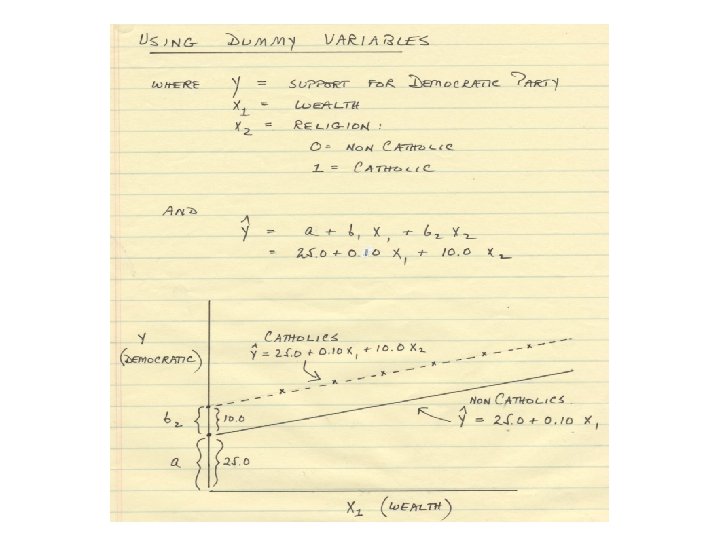 USING DUMMY VARIABLES
WHERE Y = SUPPORT FOR DEMOCRATIC PARTY
X₁ = WEALTH
X₂ = RELIGION:
0 = NON CATHOLIC
1 = CATHOLIC
AND
Ŷ = a + b₁ X₁ + b₂ X₂
= 25.0 + 0.10 X₁ + 10.0 X₂
Y
(DEMOCRATIC)
CATHOLICS
Ŷ = 25.0 + 0.10 X₁ + 10.0 X₂
NON CATHOLICS
Ŷ = 25.0 + 0.10 X₁
b₂ { } 10.0
a { } 25.0
X₁ (WEALTH)